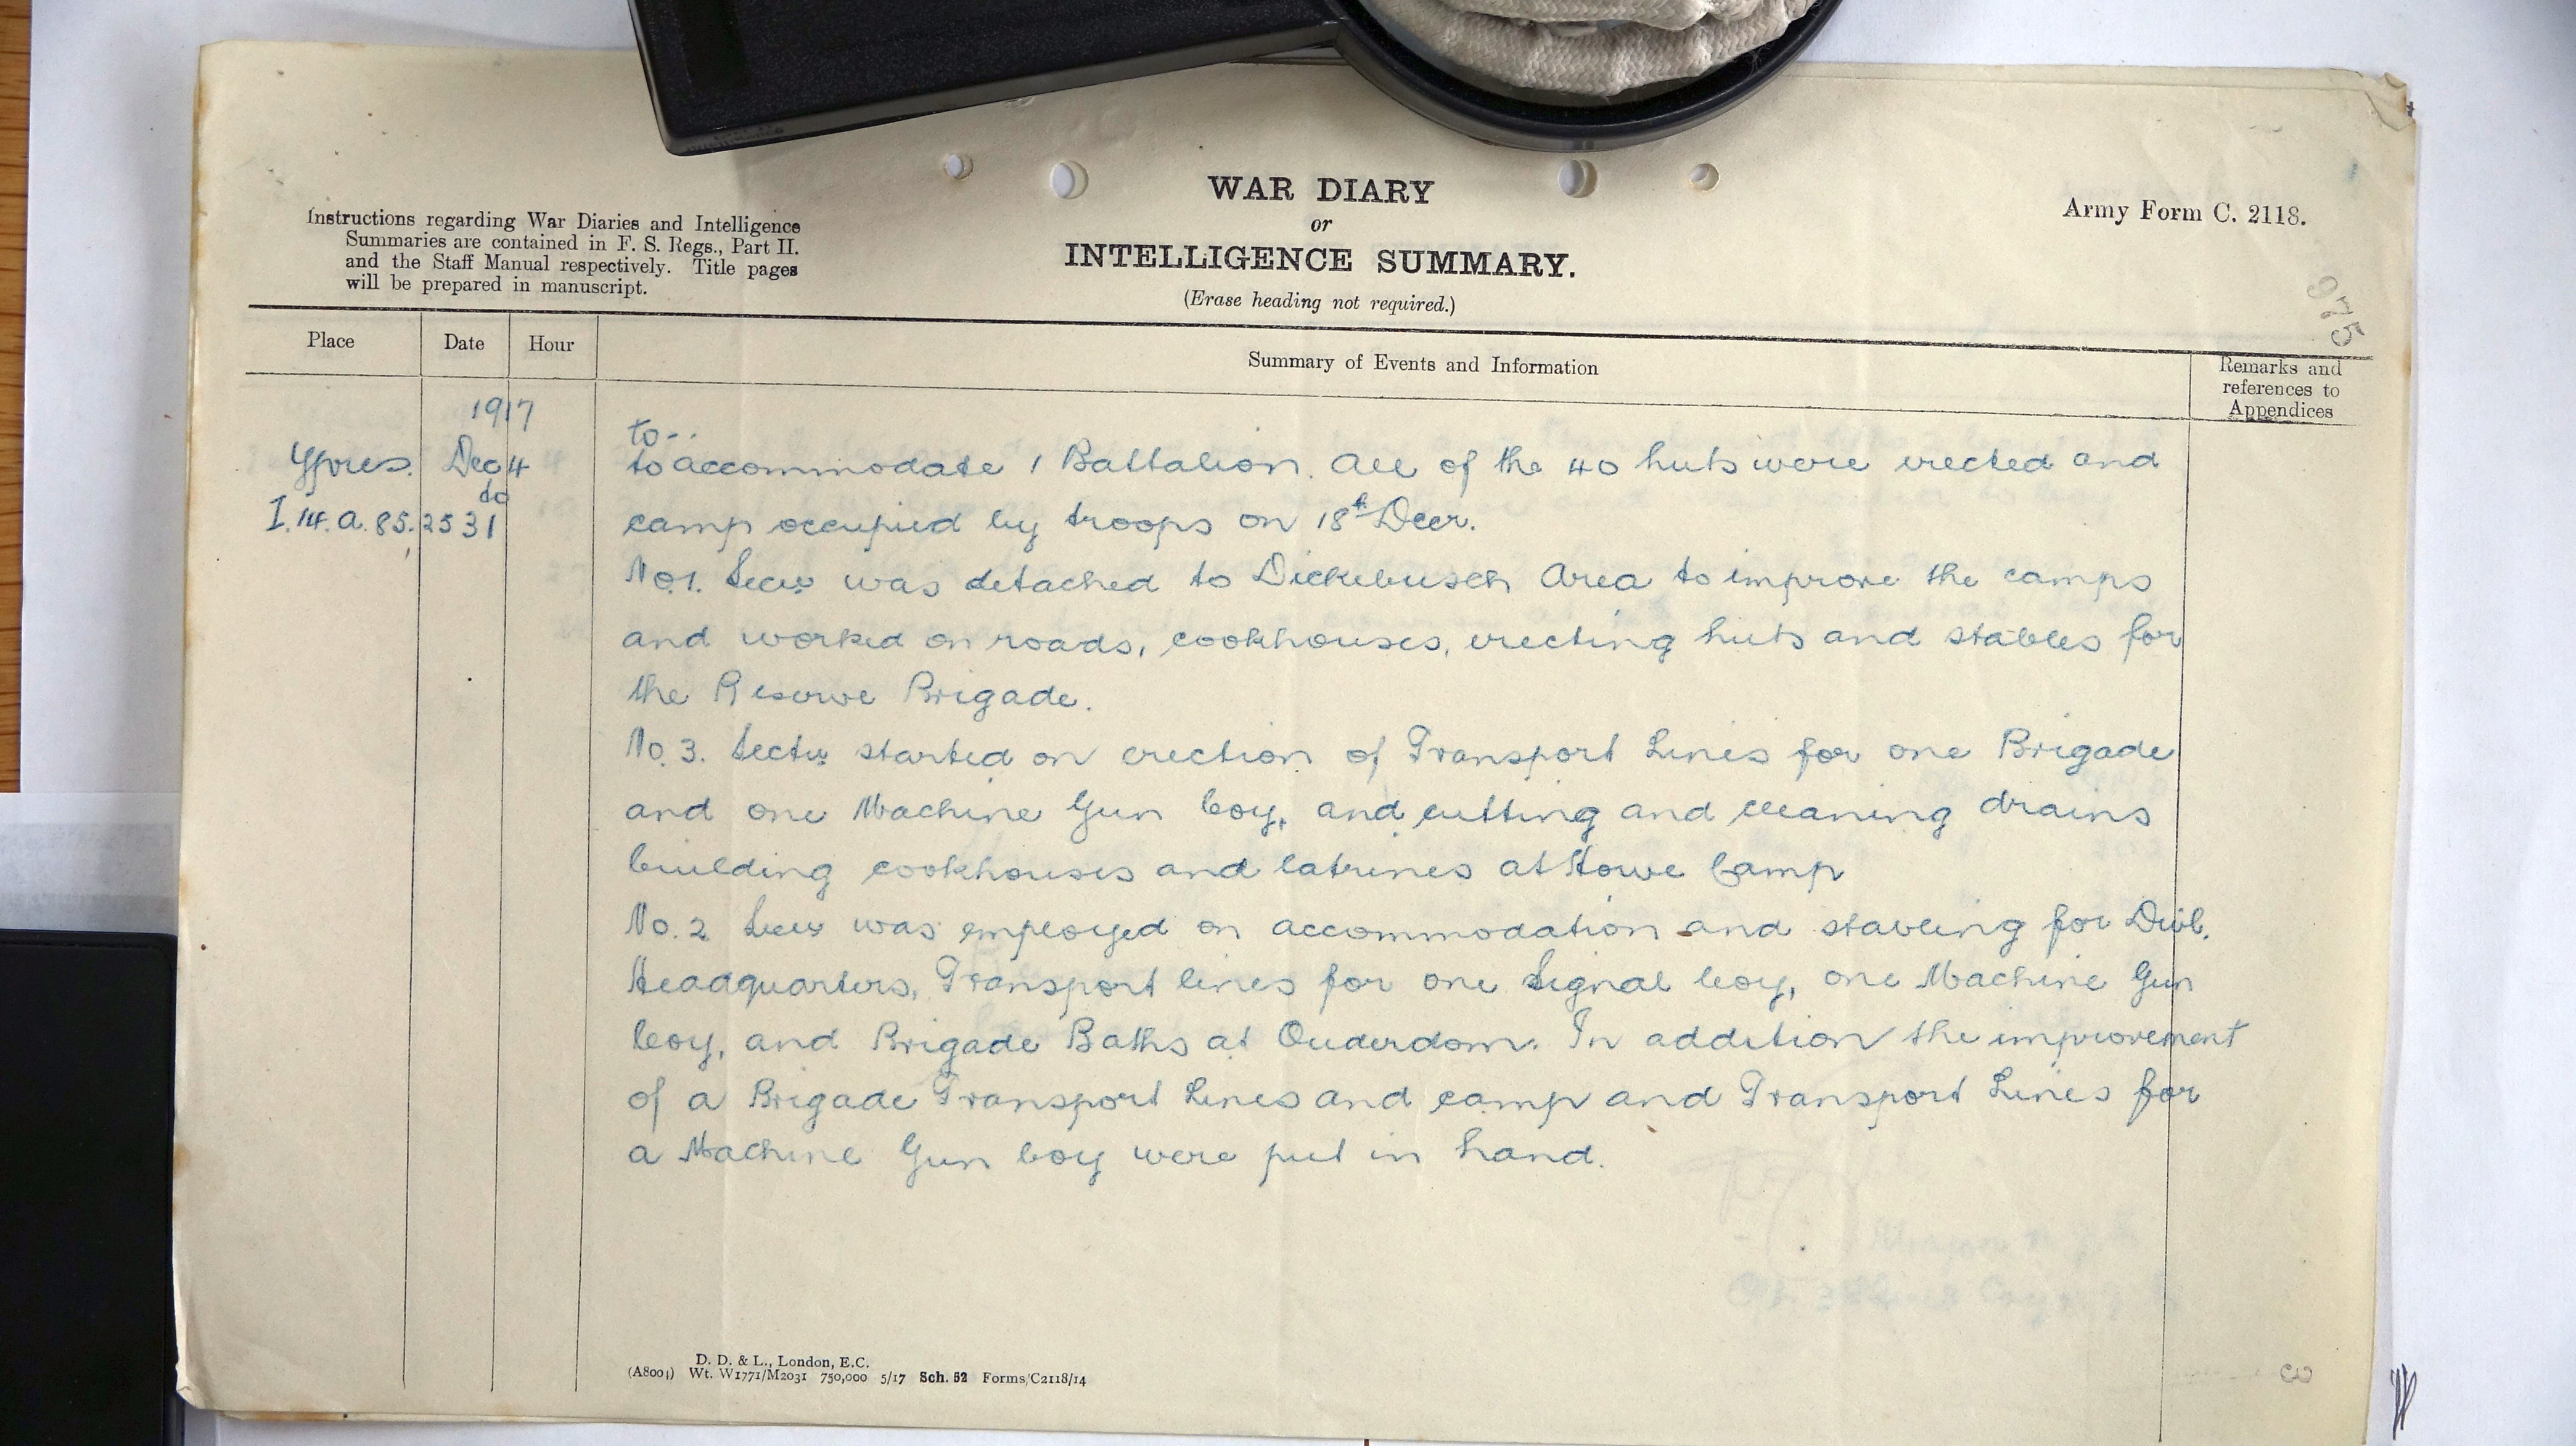 WAR DIARY
or
INTELLIGENCE SUMMARY.
(Erase heading not required.)
Army Form C. 2118.
Instructions regarding War Diaries and Intelligence
Summaries are contained in F. S. Regs., Part II.
and the Staff Manual respectively. Title pages
will be prepared in manuscript.
975
Place Date Hour Summary of Events and Information Remarks and
references to
Appendices
1917
Ypres. Dec 4
to
I.14.a.85.25 31
to--
to accommodate 1 Battalion. All of the 40 huts were erected and
camp occupied by troops on 18th Decr.
No.1. Secn was detached to Dickebusch Area to improve the camps
and worked on roads, cookhouses, erecting huts and stables for
the Reserve Brigade.
No. 3. Sectn started on erection of Transport Lines for one Brigade
and one Machine Gun Coy, and cutting and cleaning drains
building cookhouses and latrines at Howe Camp
No. 2 Secn was employed on accommodation and stabling for Divl.
Headquarters, Transport lines for one Signal Coy, one Machine Gun
Coy, and Brigade Baths at Ouderdom. In addition the improvement
of a Brigade Transport Lines and camp and Transport Lines for
a Machine Gun Coy were put in hand.
D. D. & L., London, E.C.
(A8001) Wt. W1771/M2031 750,000 5/17 Sch. 52 Forms/C2118/14